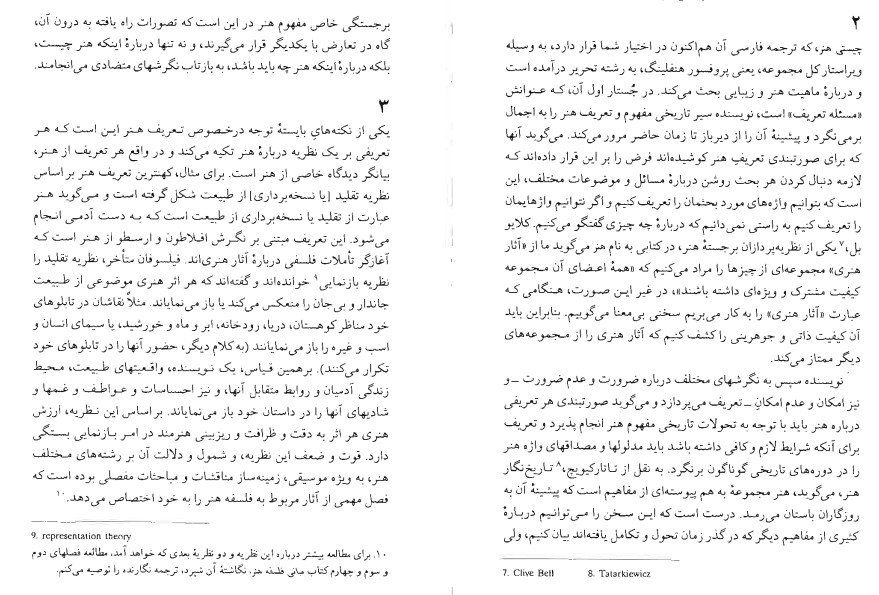 ۲
چیستی هنر، که ترجمه فارسی آن هم‌اکنون در اختیار شما قرار دارد، به وسیله
ویراستار کل مجموعه، یعنی پروفسور هنفلینگ، به رشته تحریر درآمده است
و دربارهٔ ماهیت هنر و زیبایی بحث می‌کند. در جُستار اول آن، که عنوانش
«مسئله تعریف» است، نویسنده سیر تاریخی مفهوم و تعریف هنر را به اجمال
برمی‌نگرد و پیشینهٔ آن را از دیرباز تا زمان حاضر مرور می‌کند. می‌گوید آنها
که برای صورتبندی تعریفِ هنر کوشیده‌اند فرض را بر این قرار داده‌اند که
لازمه دنبال کردن هر بحث روشن دربارهٔ مسائل و موضوعات مختلف، این
است که بتوانیم واژه‌های مورد بحثمان را تعریف کنیم و اگر نتوانیم واژهایمان
را تعریف کنیم به راستی نمی‌دانیم که دربارهٔ چه چیزی گفتگو می‌کنیم. کلایو
بل،۷ یکی از نظریه‌پردازان برجستهٔ هنر، در کتابی به نام هنر می‌گوید ما از «آثار
هنری» مجموعه‌ای از چیزها را مراد می‌کنیم که «همهٔ اعضای آن مجموعه
کیفیت مشترک و ویژه‌ای داشته باشند»، در غیر این صورت، هنگامی که
عبارت «آثار هنری» را به کار می‌بریم سخنی بی‌معنا می‌گوییم. بنابراین باید
آن کیفیت ذاتی و جوهرینی را کشف کنیم که آثار هنری را از مجموعه‌های
دیگر ممتاز می‌کند.
نویسنده سپس به نگرشهای مختلف درباره ضرورت و عدم ضرورت ــ و
نیز امکان و عدم امکانِ ــ تعریف می‌پردازد و می‌گوید صورتبندی هر تعریفی
درباره هنر باید با توجه به تحولات تاریخی مفهوم هنر انجام پذیرد و تعریف
برای آنکه شرایط لازم و کافی داشته باشد باید مدلولها و مصداقهای واژه هنر
را در دوره‌های تاریخی گوناگون برنگرد. به نقل از تاتارکیویچ،۸ تاریخ‌نگار
هنر، می‌گوید، هنر مجموعهٔ به هم پیوسته‌ای از مفاهیم است که پیشینهٔ آن به
روزگاران باستان می‌رسد. درست است که این سخن را می‌توانیم دربارهٔ
کثیری از مفاهیم دیگر که در گذر زمان تحول و تکامل یافته‌اند بیان کنیم، ولی
7. Clive Bell 8. Tatarkiewicz
برجستگی خاص مفهوم هنر در این است که تصورات راه یافته به درون آن،
گاه در تعارض با یکدیگر قرار می‌گیرند، و نه تنها دربارهٔ اینکه هنر چیست،
بلکه دربارهٔ اینکه هنر چه باید باشد، به بازتاب نگرشهای متضادی می‌انجامند.
۳
یکی از نکته‌های بایستهٔ توجه درخصوص تعریف هنر این است که هر
تعریفی بر یک نظریه دربارهٔ هنر تکیه می‌کند و در واقع هر تعریف از هنر،
بیانگر دیدگاه خاصی از هنر است. برای مثال، کهنترین تعریف هنر بر اساس
نظریه تقلید [یا نسخه‌برداری] از طبیعت شکل گرفته است و می‌گوید هنر
عبارت از تقلید یا نسخه‌برداری از طبیعت است که به دست آدمی انجام
می‌شود. این تعریف مبتنی بر نگرش افلاطون و ارسطو از هنر است که
آغازگر تأملات فلسفی دربارهٔ آثار هنری‌اند. فیلسوفان متأخر، نظریه تقلید را
نظریه بازنمایی۹ خوانده‌اند و گفته‌اند که هر اثر هنری موضوعی از طبیعت
جاندار و بی‌جان را منعکس می‌کند یا باز می‌نمایاند. مثلاً نقاشان در تابلوهای
خود مناظر کوهستان، دریا، رودخانه، ابر و ماه و خورشید، یا سیمای انسان و
اسب و غیره را باز می‌نمایانند (به کلام دیگر، حضور آنها را در تابلوهای خود
تکرار می‌کنند). بر همین قیاس، یک نویسنده، واقعیتهای طبیعت، محیط
زندگی آدمیان و روابط متقابل آنها، و نیز احساسات و عواطف و غمها و
شادیهای آنها را در داستان خود باز می‌نمایاند. بر اساس این نظریه، ارزش
هنری هر اثر به دقت و ظرافت و ریزبینی هنرمند در امر بازنمایی بستگی
دارد. قوت و ضعف این نظریه، و شمول و دلالت آن بر رشته‌های مختلف
هنر، به ویژه موسیقی، زمینه‌ساز مناقشات و مباحثات مفصلی بوده است که
فصل مهمی از آثار مربوط به فلسفه هنر را به خود اختصاص می‌دهد.۱۰
9. representation theory
۱۰. برای مطالعه بیشتر درباره این نظریه و دو نظریهٔ بعدی که خواهد آمد، مطالعه فصلهای دوم
و سوم و چهارم کتاب مبانی فلسفه هنر، نگاشتهٔ آن شپرد، ترجمه نگارنده را توصیه می‌کنم.